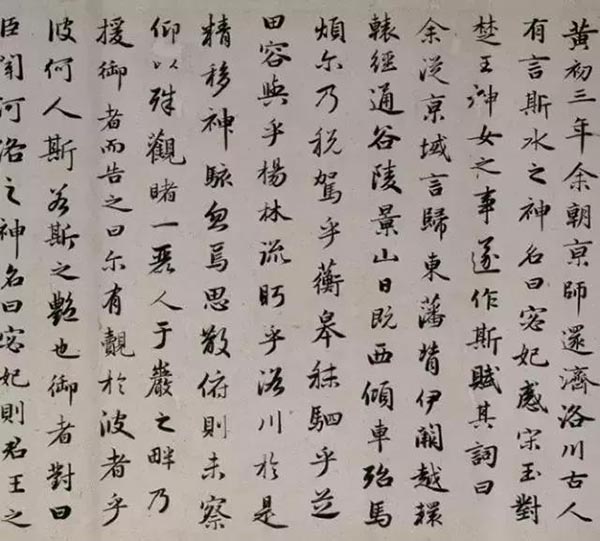 黃初三年余朝京師還濟洛川古人
有言斯水之神名曰宓妃感宋玉對
楚王神女之事遂作斯賦其詞曰
余從京域言歸東藩背伊闕越轘
轅經通谷陵景山日既西傾車殆馬
煩尔乃稅駕乎蘅皋秣駟乎芝
田容與乎楊林流眄乎洛川於是
精移神駭忽焉思散俯則未察
仰以殊觀睹一麗人于巖之畔乃
援御者而告之曰尔有覿於彼者乎
彼何人斯若斯之艷也御者對曰
臣聞河洛之神名曰宓妃則君王之